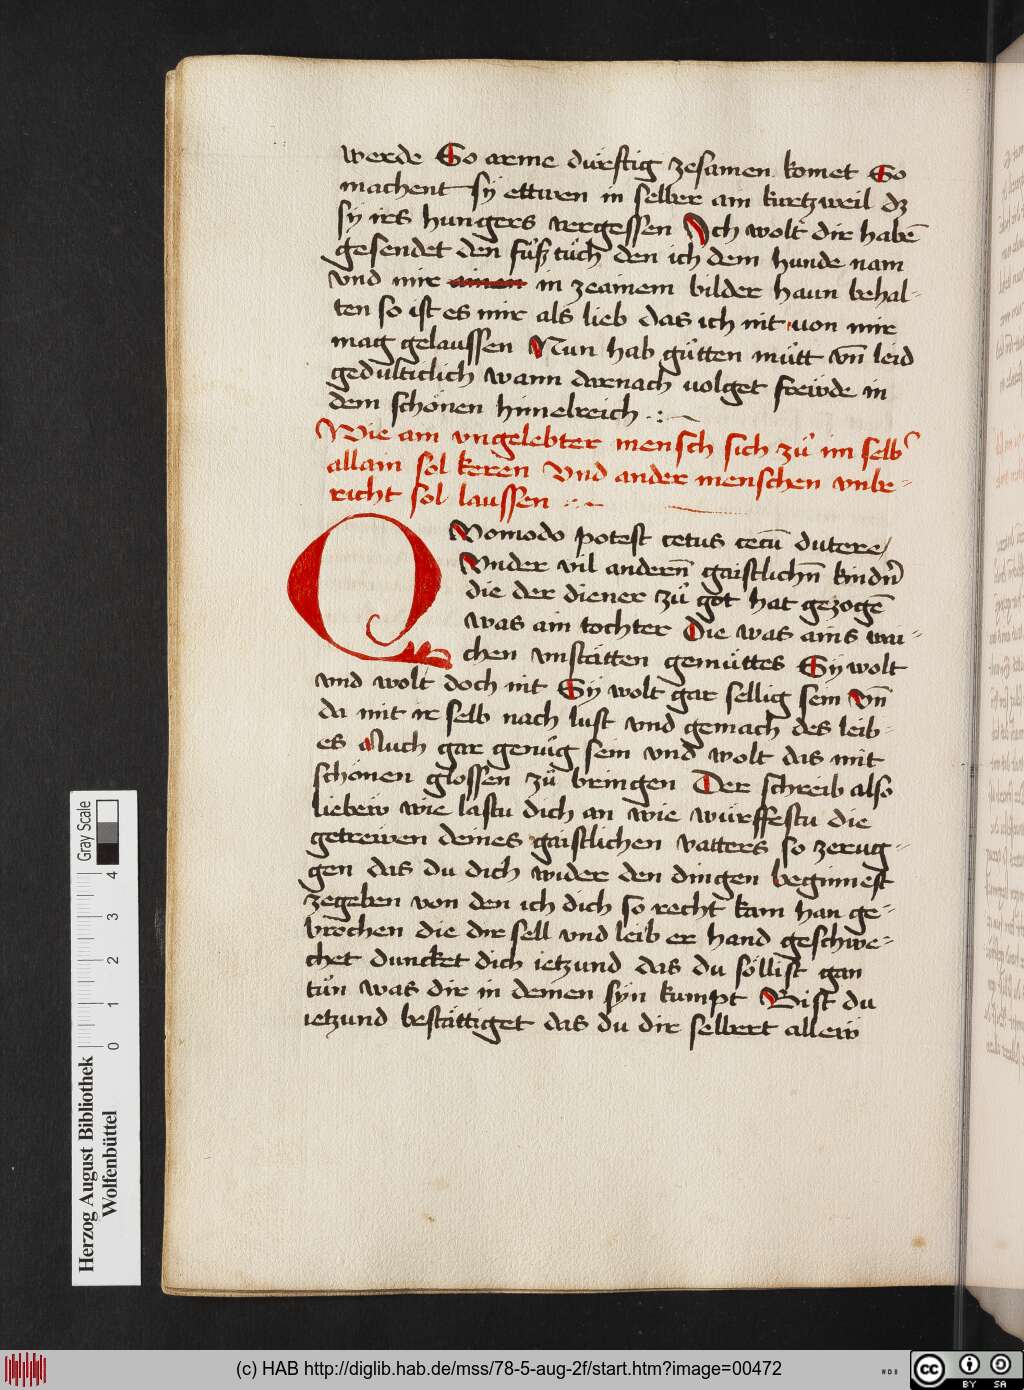 werde So arme dürftig zesamen komet So
machent sÿ ettwen in selber am kurtzweil dz
sÿ irs hungers vergessen Ich wolt dir habē
gesendet den fůßtůch den ich dem hunde nam
vnd mir ainen in zeainem bilder haun behal-
ten so ist es mir als lieb das ich nit von mir
mag gelaussen Nun hab gůtten můtt vn̄ leid
gedulticlich wann darnach uolget freẅde in
dem schönen himelreich
Wie am vngelebter mensch sich zů im selb
allain sol keren Vnd ander menschen vnbe-
richt sol laussen
QVomodo potest cetus cecū dutere
Vnder vil andern̄ gaistlichn̄ kindn̄
die der diener zů got hat gezogē
was ain tochter Die was ains wai-
chen vnstätten gemüttes Sÿ wolt
vnd wolt doch nit Sÿ wolt gar sellig sein vn̄
da mit ir selb nach lust vnd gemach des leib-
es Auch gar genůg sein vnd wolt das mit
schönen glossen zů bringen Der schreib also
liebeẅ wie lastu dich an wie würffestu die
getreẅen deines gaistlichen vatters so zerug-
gen das du dich wider den dingen beginnest
zegeben von den ich dich so recht kam han ge-
brochen die dir sell vnd leib er hand geschwe-
chet duncket dich ietzund das du söllist gan
tůn was dir in deinen sÿn kumpt Bist du
ietzund bestättiget das du dir selbert alleẅ
Gray Scale
4
3
2
1
0
Herzog August Bibliothek
Wolfenbüttel
(c) HAB http://diglib.hab.de/mss/78-5-aug-2f/start.htm?image=00472
cc BY SA